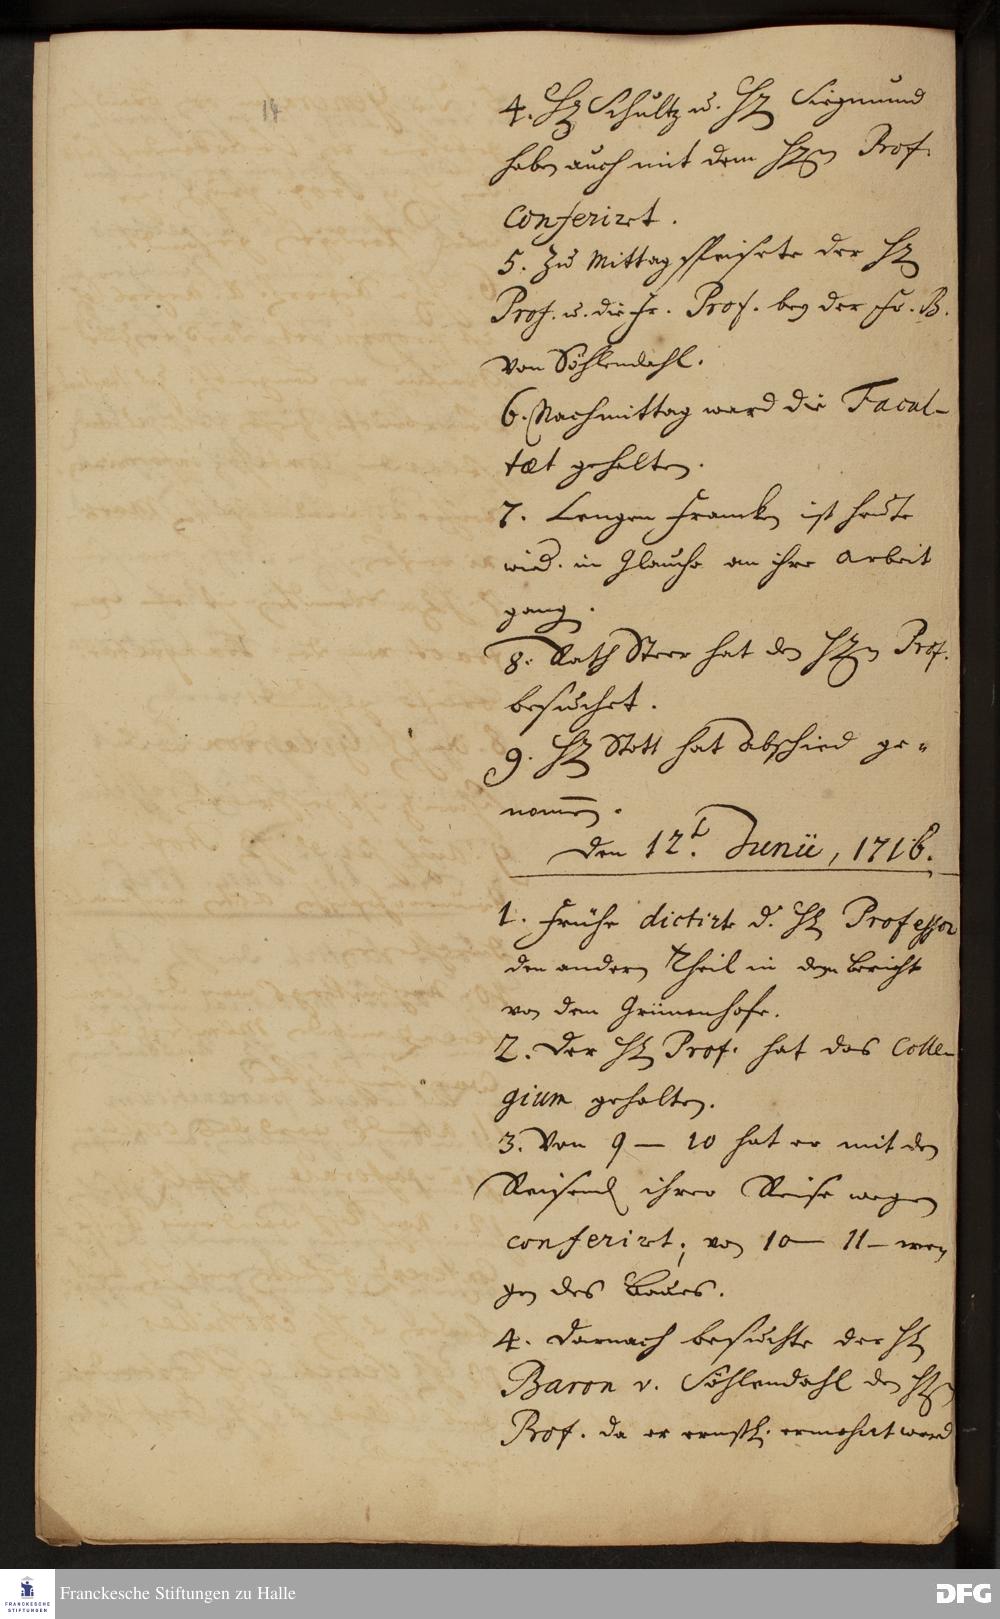 14
4. Hr Schultz u. Hr Siegmund
haben auch mit dem Hrn Prof.
conferiret.
5. Zu Mittag speisete der Hr
Prof. u. die Fr. Prof. bey der Fr. B.
von Söhlendahl.
6. Nachmittag ward die Facul-
tæt gehalten.
7. Francken ist heute
wied. in Glaucha an ihre Arbeit
gang.
8. Rath Steer hat den Hrn Prof.
besuchet.
9. Hr Stott hat Abschied ge-
nommen.
den 12t. Junii, 1716.
1. Frühe dictirte d. Hr Professor
den andern Theil in dem Bericht
von dem Grünenhofe.
2. Der Hr Prof. hat das Colle-
gium gehalten.
3. Von 9 — 10 hat er mit den
Reisend ihrer Reise wegen
conferiret; von 10 — 11 — we-
gen des Baues.
4. Darnach besuchte der Hr
Baron v. Söhlendahl den Hrn
Prof. da er ernstl. ermahnt ward
FRANCKESCHE STIFTUNGEN
Franckesche Stiftungen zu Halle
DFG